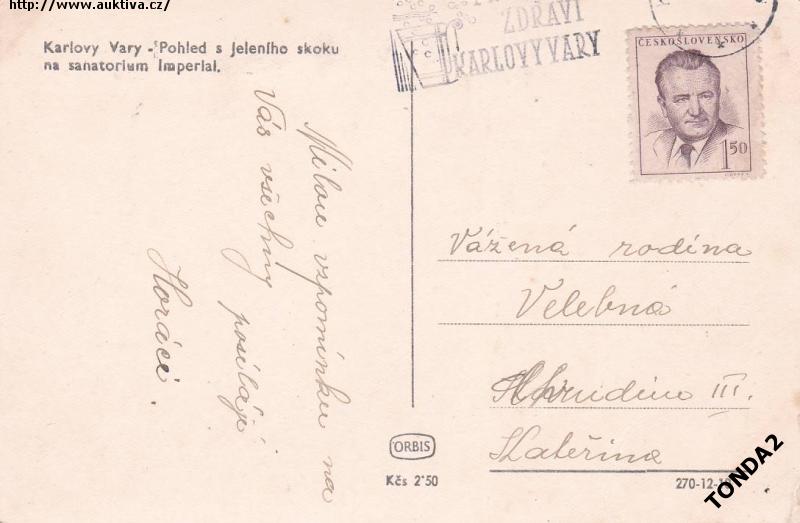 http://www.auktiva.cz/
Karlovy Vary - Pohled s Jeleního skoku
na sanatorium Imperial.
ZDRAVÍ
KARLOVY VARY
ČESKOSLOVENSKO
1 50
Milou vzpomínku na
Vás všechny posílají
Horáci.
Vážená rodina
Velebná
Chrudim III.
Kateřina
ORBIS
Kčs 2'50
270-12-1
TONDA2